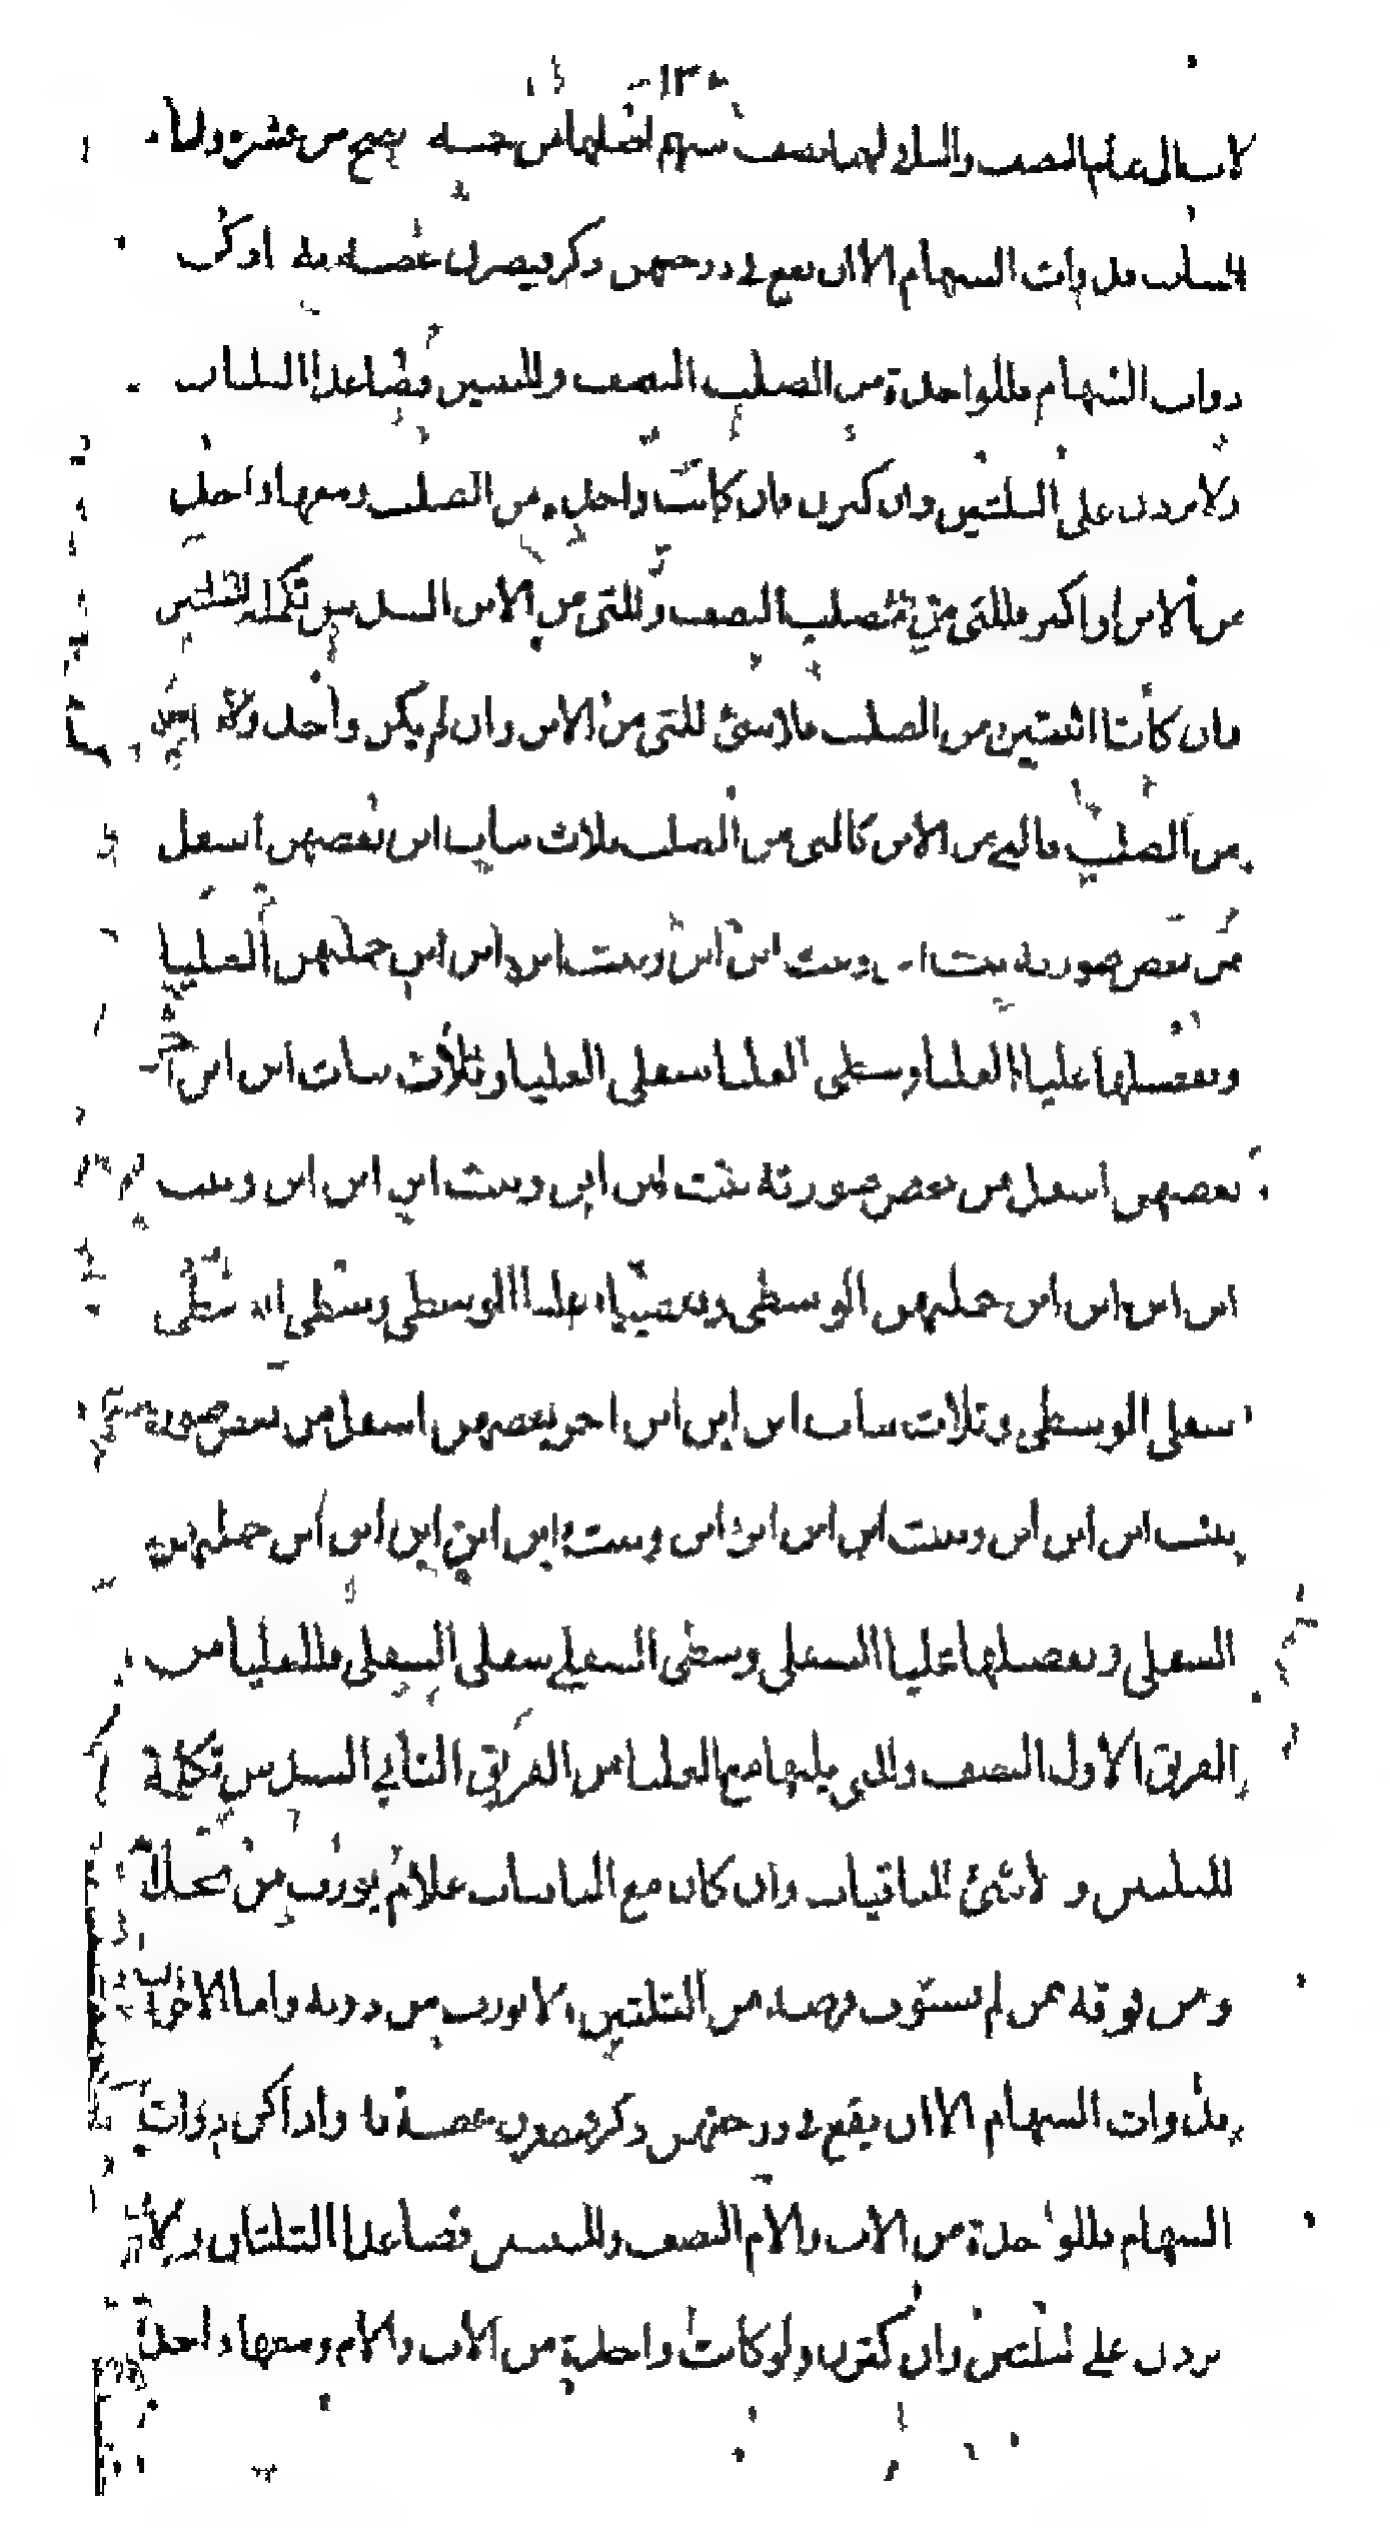 ١٣٥
لاب الى تمام النصف والسدس لهما نصف سهم اصلها من خمسة يصح من عشرة واما
البنات فذوات السهام الا ان يقع في درجتهن ذكر فيصرن عصبة به اذا كن
ذوات السهام فللواحدة من الصلب النصف وللبنتين فصاعدا الثلثان
ولا يزدن على الثلثين وان كثرن فان كانت واحدة من الصلب ومعها واحدة
من الابن او اكثر فللتي من الصلب النصف وللتي من الابن السدس تكملة الثلثين
فان كانتا اثنتين من الصلب فلا شئ للتي من الابن وان لم يكن واحد ولا اثنتين
من الصلب فالتي من الابن كالتي من الصلب ثلاث بنات ابن بعضهن اسفل
من بعض صورته بنت ابن وبنت ابن ابن وبنت ابن ابن ابن جملتهن العليا
وتفصيلها عليا العليا وسطى العليا سفلى العليا وثلاث بنات ابن ابن آخر
بعضهن اسفل من بعض صورته بنت ابن ابن وبنت ابن ابن ابن وبنت
ابن ابن ابن ابن جملتهن الوسطى وتفصيلها عليا الوسطى وسطى الوسطى
سفلى الوسطى وثلاث بنات ابن ابن ابن اخر بعضهن اسفل من بعض صورته
بنت ابن ابن ابن وبنت ابن ابن ابن ابن وبنت ابن ابن ابن ابن ابن جملتهن
السفلى وتفصيلها عليا السفلى وسطى السفلى سفلى السفلى فللعليا من
الفريق الاول النصف والتي يليها مع العليا من الفريق الثاني السدس تكملة
للثلثين ولا شئ للباقيات وان كان مع البنات غلام يورث من بحذائه
ومن فوقه ممن لم تستوف فرضه من الثلثين ولا يورث من دونه واما الاخوات
فذوات السهام الا ان يقع في درجتهن ذكر فيصرن عصبة به واذا كن ذوات
السهام فللواحدة من الاب والام النصف وللبنتين فصاعدا الثلثان ولا
يزدن على الثلثين وان كثرن ولو كانت واحدة من الاب والام ومعها واحدة